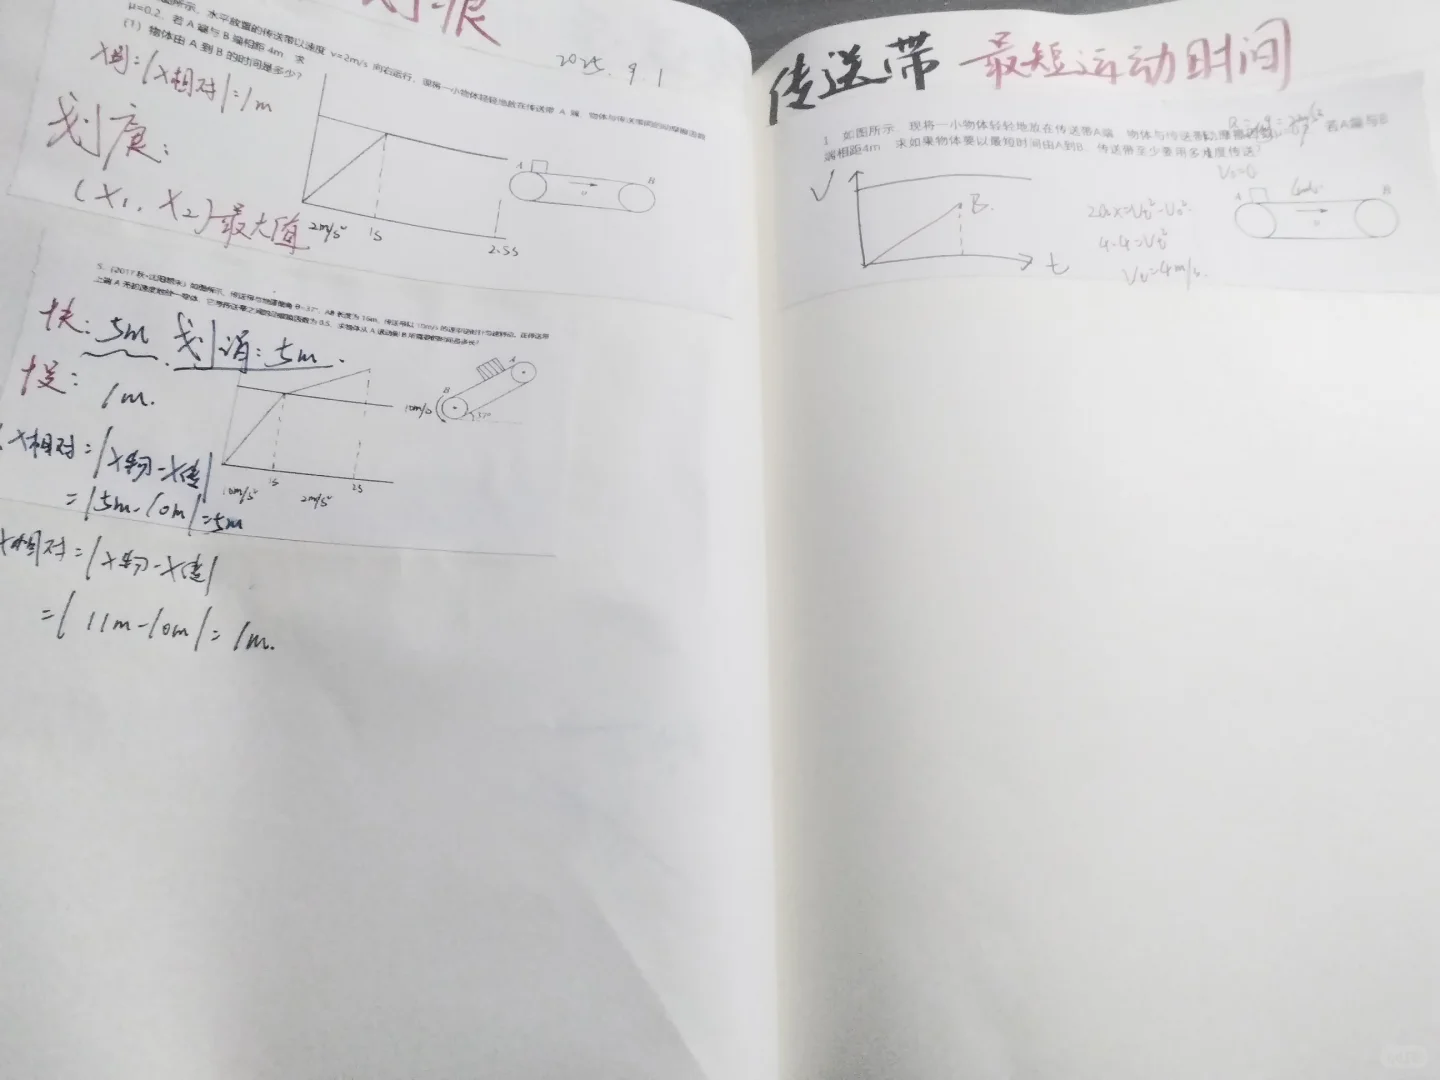 划痕
2025.9.1
如图所示，水平放置的传送带以速度 v=2m/s 向右运行，现将一小物体轻轻地放在传送带 A 端，物体与传送带间的动摩擦因数
μ=0.2，若 A 端与 B 端相距 4m，求
(1) 物体由 A 到 B 的时间是多少？
X划:|X相对|=1m
划痕:
(X1, X2)最大值
2m/s² 1s 2.5s
A B
υ
5. (2017秋·沈阳期末) 如图所示，传送带与地面倾角 θ=37°，AB 长度为 16m，传送带以 10m/s 的速率逆时针转动，在传送带
上端 A 无初速度地放一物体，它与传送带之间的动摩擦因数为 0.5，求物体从 A 运动到 B 所需要的时间是多长？
快: 5m 划消: 5m.
慢: 1m.
10m/s
A
B
37°
X相对=|X物-X传|
=|5m-10m|=5m
10m/s² 1s 2m/s² 2s
X相对=|X物-X传|
=|11m-10m|=1m.
传送带 最短运动时间
1 如图所示，现将一小物体轻轻地放在传送带A端，物体与传送带动摩擦因数 若A端与B
端相距4m，求如果物体要以最短时间由A到B，传送带至少要用多 度传送？
V0=0
V
B.
t
2ax=Vt²-V0²
4·4=Vt²
Vt=4m/s.
A B
υ